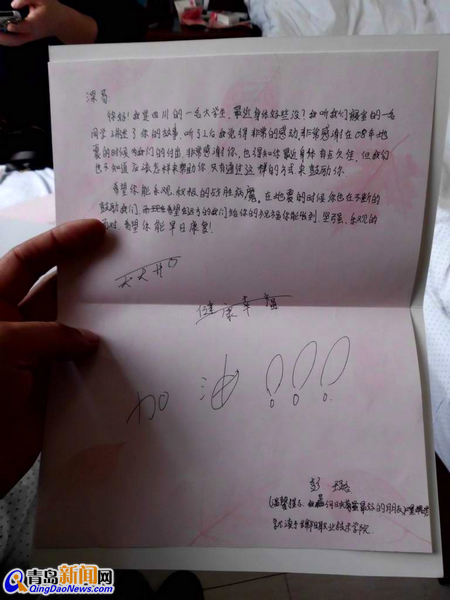 深易
你好！我是四川的一名大学生，最近身体好些没？我听我们寝室的一名
同学讲述了你的故事，听了之后我觉得非常的感动，非常感谢在08年地
震的时候为我们的付出，非常感谢你，也得知你最近身体有点欠佳，但我们
也不知道应该怎样来帮助你，只有通过这样的方式来鼓励你，
希望你能乐观、积极的战胜病魔。在地震的时候你也在不断的
鼓励我们，希望远方的我们给你的祝福你能收到 坚强、乐观的
希望你能早日康复！
天天开心
健康幸福
加油！！！
彭
(温馨提示
职业技术学院
青岛新闻网
QingDaoNews.com